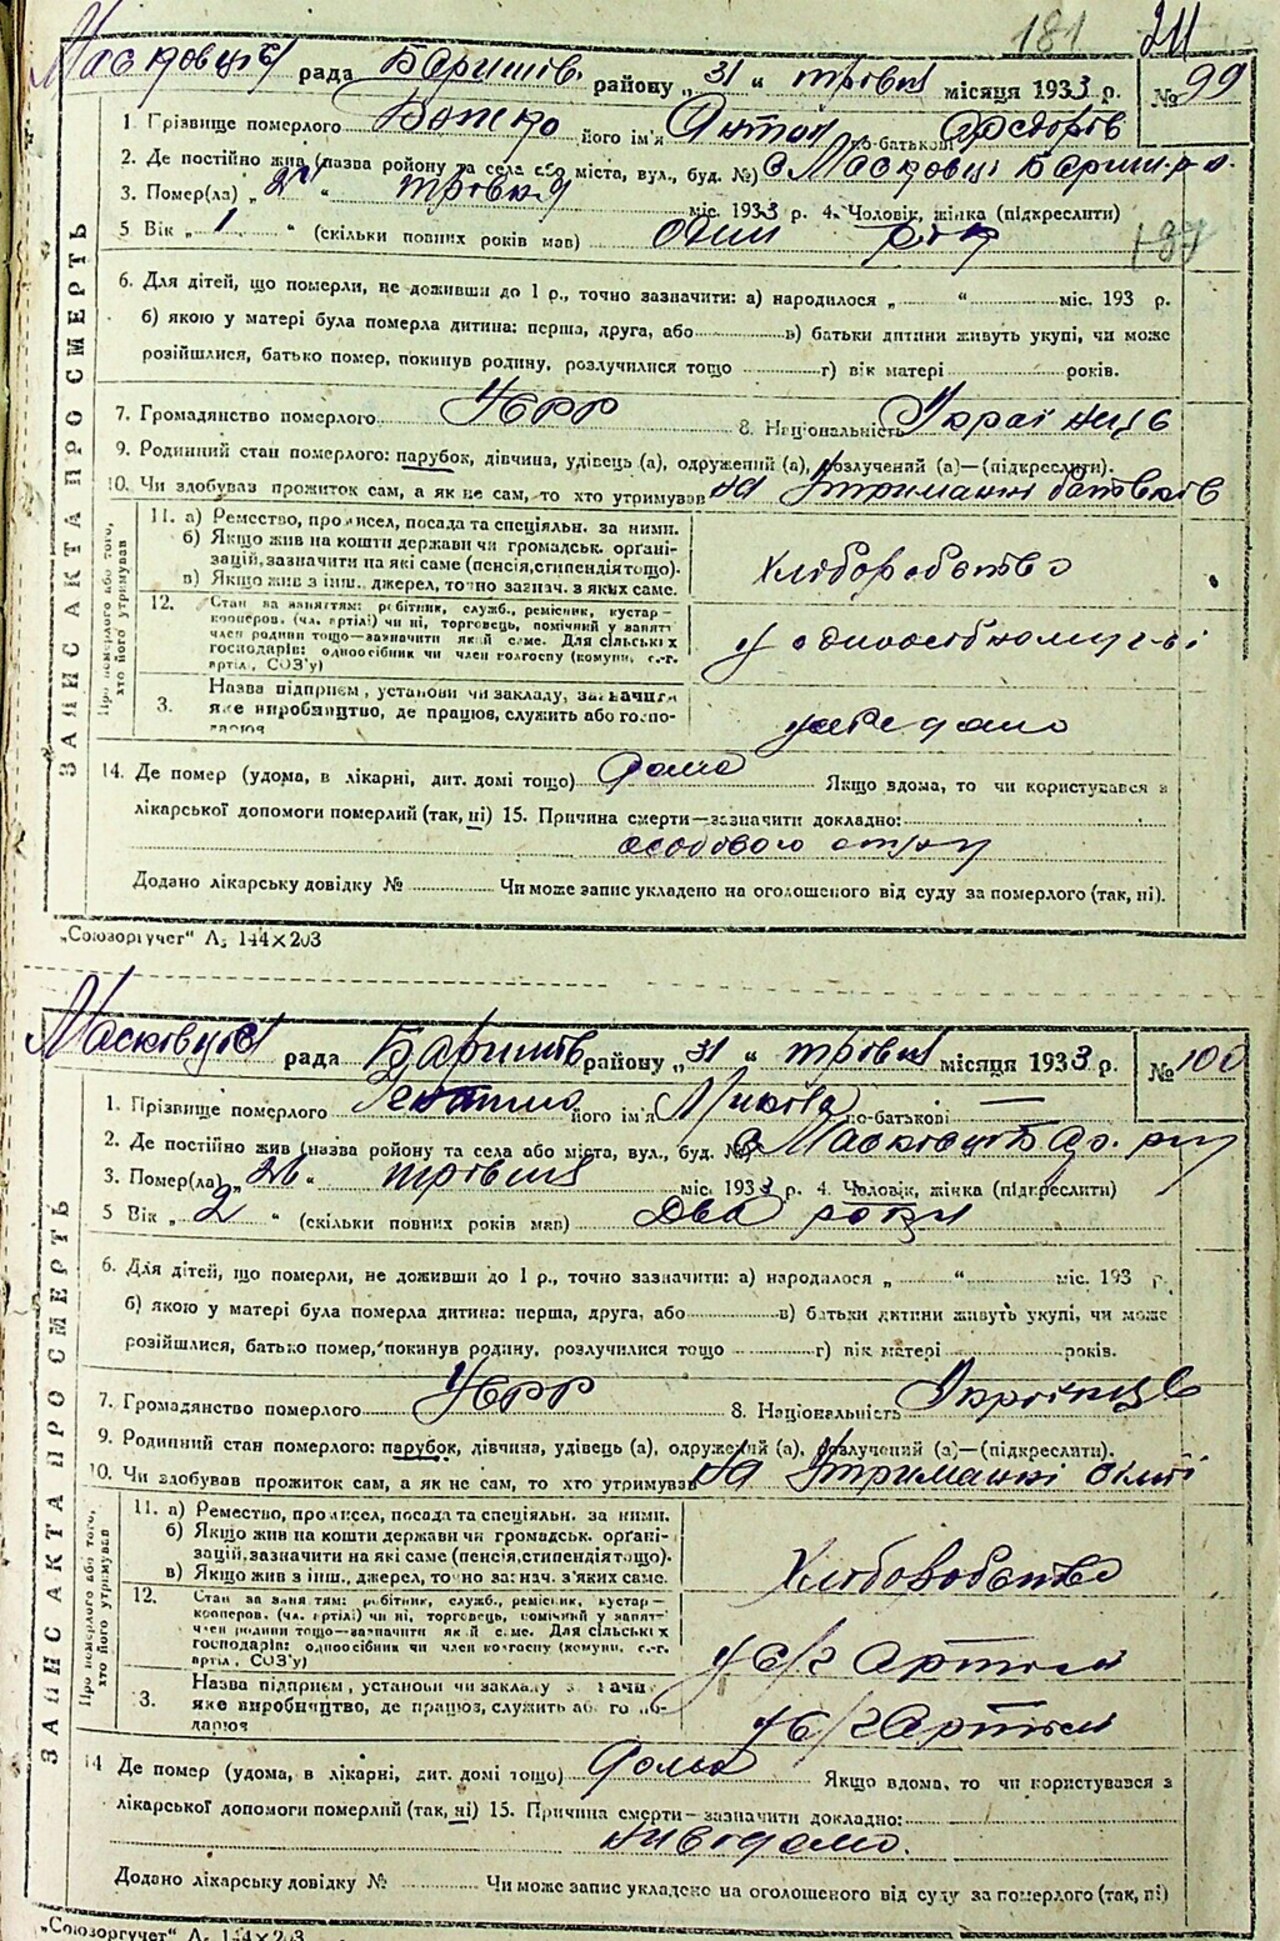 181 211
Масковців рада Баришів. району „31“ травня місяця 1933 р. № 99
1. Прізвище померлого Божко його ім'я Антон по-батькові Федорів
2. Де постійно жив (назва ройону та села або міста, вул., буд. №) с Масковці Бариш. р-н.
3. Помер(ла) „ “ травня міс. 1933 р. 4. Чоловік, жінка (підкреслити)
5 Вік „1“ (скільки повних років мав) один рік
6. Для дітей, що померли, не доживши до 1 р., точно зазначити: а) народилося „ “ міс. 193 р.
б) якою у матері була померла дитина: перша, друга, або в) батьки дитини живуть укупі, чи може
розійшлися, батько помер, покинув родину, розлучилися тощо г) вік матері років.
7. Громадянство померлого УСРР 8. Національність Українець
9. Родинний стан померлого: парубок, дівчина, удівець (а), одружений (а), розлучений (а)—(підкреслити).
10. Чи здобував прожиток сам, а як не сам, то хто утримував на утриманні батьків
ЗАПИС АКТА ПРО СМЕРТЬ
Про померлого або того, хто його утримував
11. а) Ремество, промисел, посада та спеціяльн. за ними.
б) Якщо жив на кошти держави чи громадськ. орґані-
зацій, зазначити на які саме (пенсія, стипендія тощо).
в) Якщо жив з інш. джерел, точно зазнач. з яких саме.
хліборобство
12. Стан за заняттям: робітник, служб., ремісник, кустар—
кооперов. (чл. артілі) чи ні, торговець, помічний у занятт
член родини тощо—зазначити який саме. Для сільських
господарів: одноосібник чи член колгоспу (комуни, с.-г.
артіл., СОЗ'у)
у одноосібному г-ві
3. Назва підприєм., установи чи закладу, зазначити
яке виробництво, де працює, служить або госпо-
дарює
14. Де помер (удома, в лікарні, дит. домі тощо) дома Якщо вдома, то чи користувався з
лікарської допомоги померлий (так, ні) 15. Причина смерти—зазначити докладно:
особового
Додано лікарську довідку № Чи може запис укладено на оголошеного від суду за померлого (так, ні).
„Союзоргучет“ А5 144×203
Масковців рада Баришів району „31“ травня місяця 1933 р. № 100
1. Прізвище померлого його ім'я Микола по-батькові —
2. Де постійно жив (назва району та села або міста, вул., буд. №) с Масковці
3. Помер(ла) „26“ травня міс. 1933 р. 4. Чоловік, жінка (підкреслити)
5 Вік „2“ (скільки повних років мав) два роки
6. Для дітей, що померли, не доживши до 1 р., точно зазначити: а) народилося „ “ міс. 193 р.
б) якою у матері була померла дитина: перша, друга, або в) батьки дитини живуть укупі, чи може
розійшлися, батько помер, покинув родину, розлучилися тощо г) вік матері років.
7. Громадянство померлого УСРР 8. Національність Українець
9. Родинний стан померлого: парубок, дівчина, удівець (а), одружений (а), розлучений (а)—(підкреслити).
10. Чи здобував прожиток сам, а як не сам, то хто утримував на утриманні
ЗАПИС АКТА ПРО СМЕРТЬ
Про померлого або того, хто його утримував
11. а) Ремество, промисел, посада та спеціяльн. за ними.
б) Якщо жив на кошти держави чи громадськ. орґані-
зацій, зазначити на які саме (пенсія, стипендія тощо).
в) Якщо жив з інш., джерел, точно зазнач. з'яких саме.
Хліборобство
12. Стан за заняттям: робітник, служб., ремісник, кустар—
кооперов. (чл. артілі) чи ні, торговець, помічний у занятт
член родини тощо—зазначити який саме. Для сільських
господарів: одноосібник чи член колгоспу (комуни, с.-г.
артіл., СОЗ'у)
у с/г артілі
3. Назва підприєм., установи чи закладу зазначити
яке виробництво, де працює, служить або госпо-
дарює
у с/г артілі
14 Де помер (удома, в лікарні, дит. домі тощо) дома Якщо вдома, то чи користувався з
лікарської допомоги померлий (так, ні) 15. Причина смерти—зазначити докладно:
Додано лікарську довідку № Чи може запис укладено на оголошеного від суду за померлого (так, ні)
„Союзоргучет“ А5 144×203